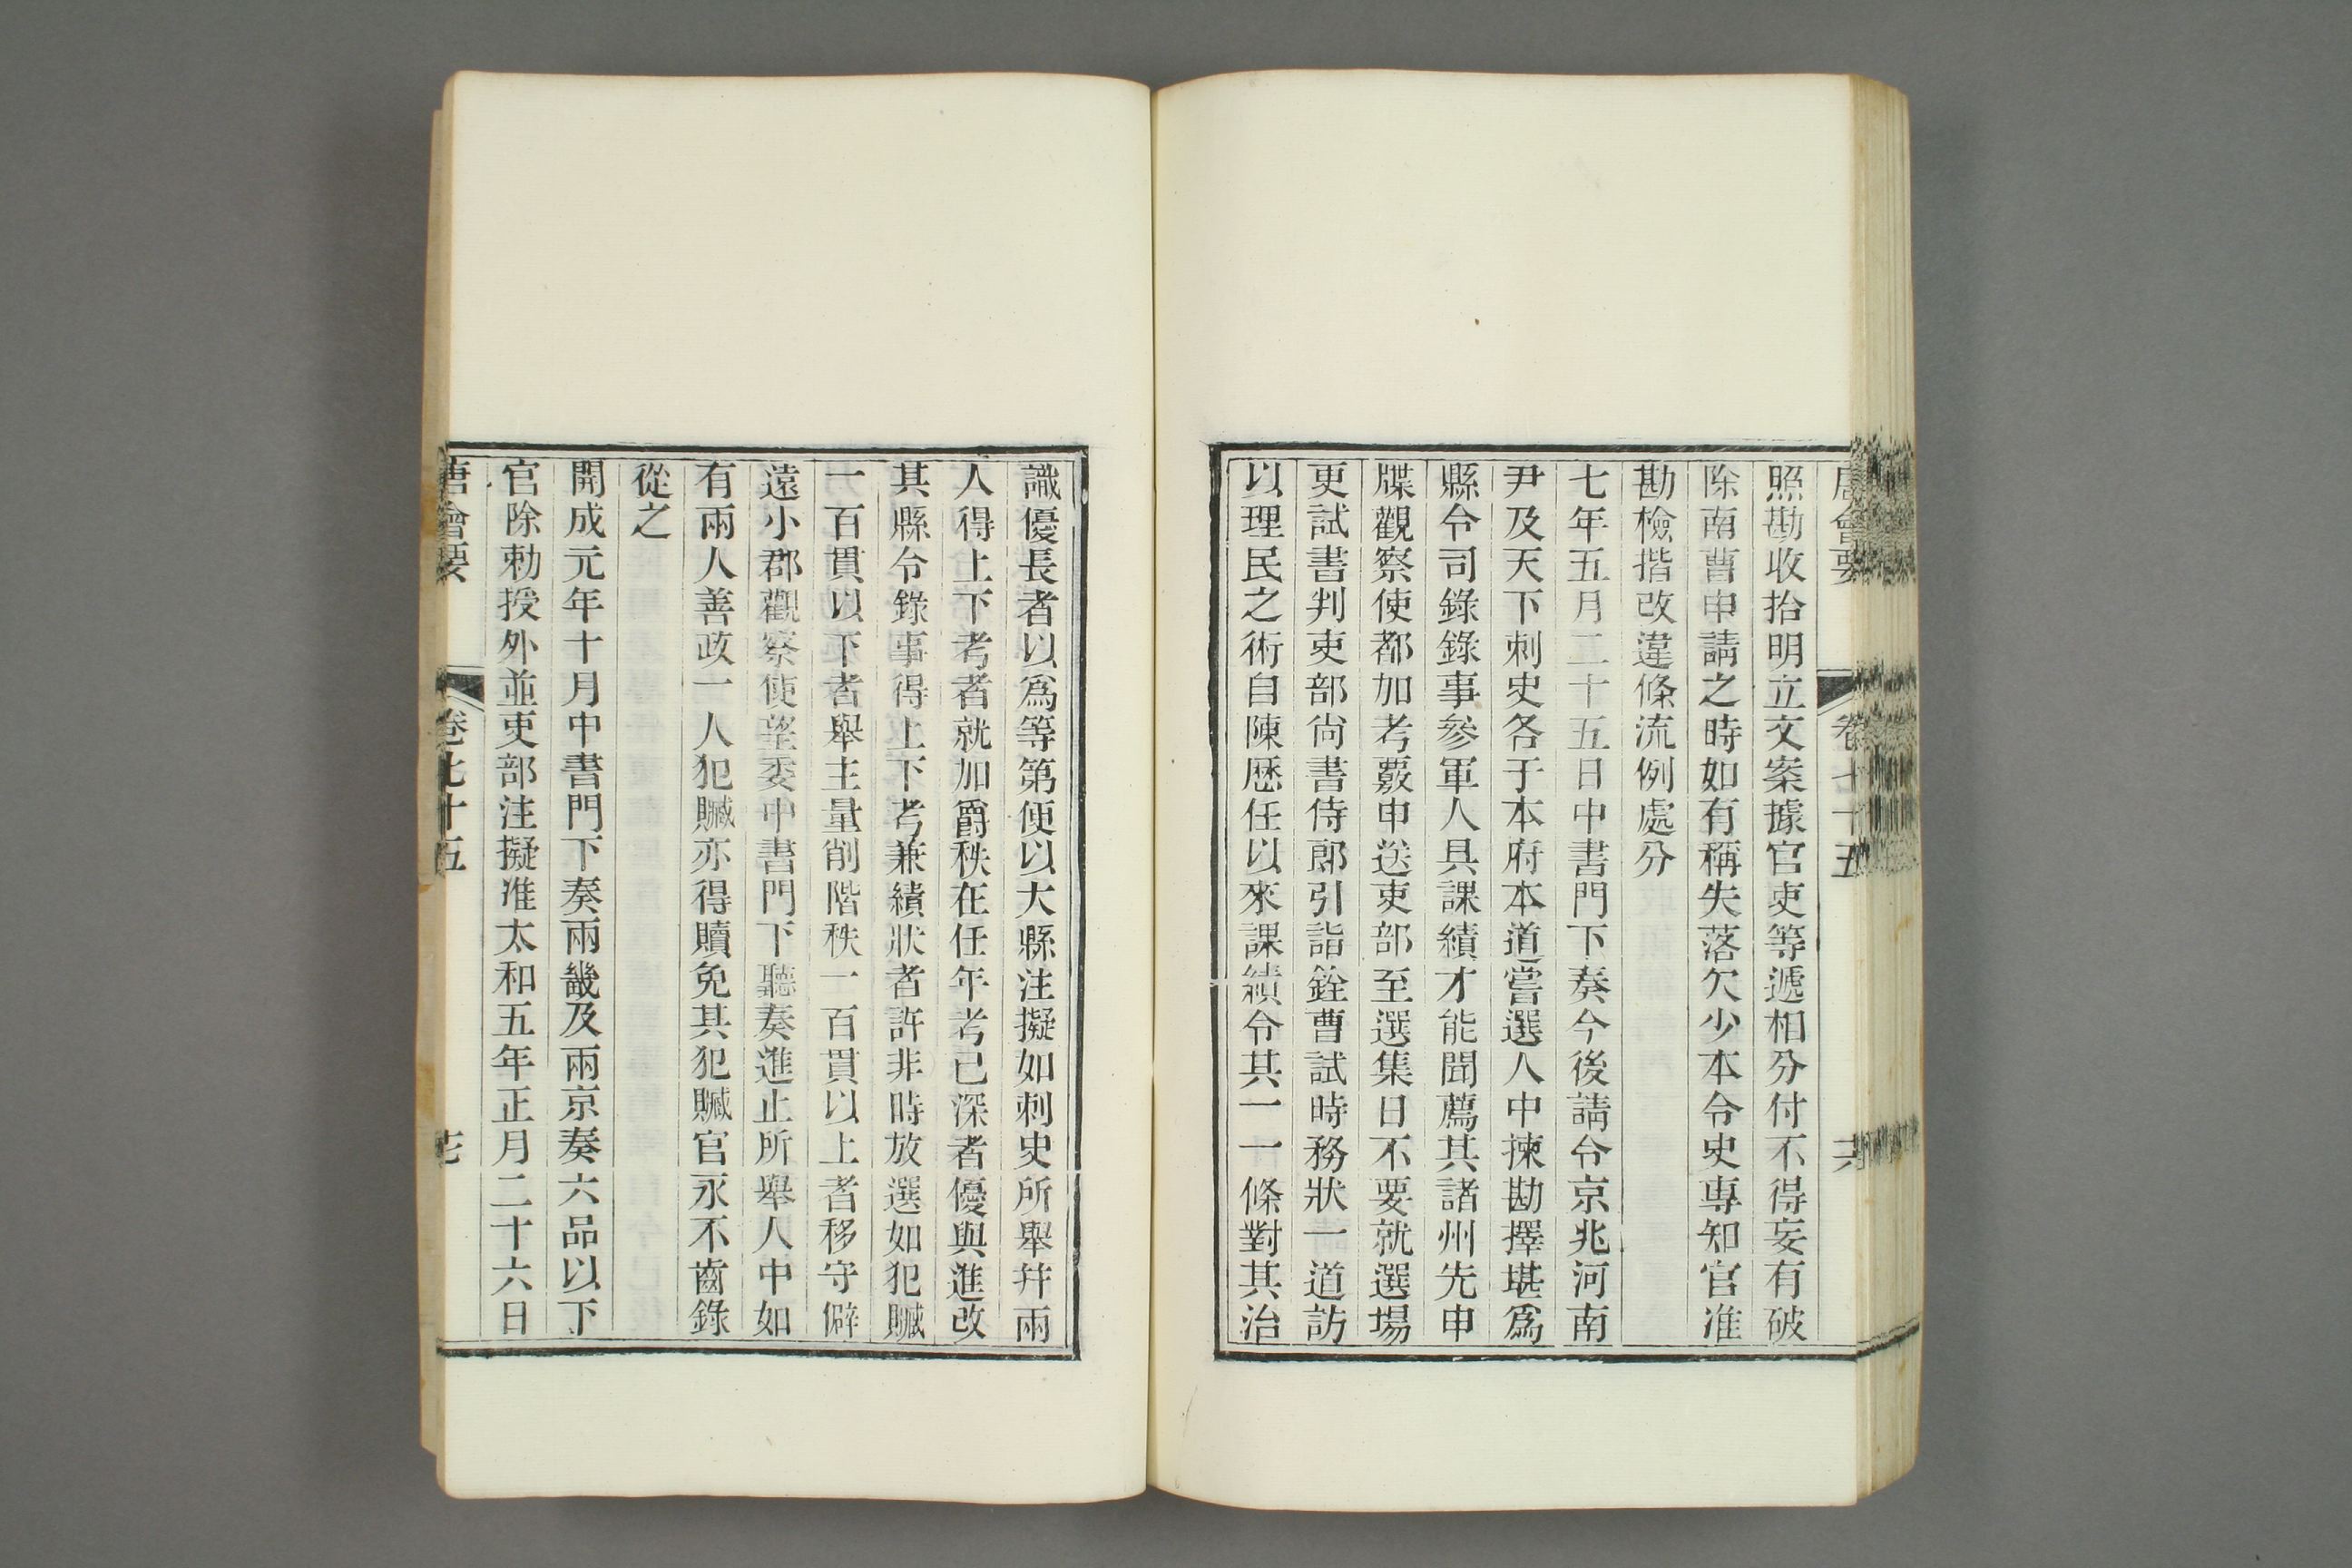 唐會要 卷七十五 六
照勘收拾明立文案據官吏等遞相分付不得妄有破
除南曹申請之時如有稱失落欠少本令史專知官准
勘檢揩改違條流例處分
七年五月二十五日中書門下奏今後請令京兆河南
尹及天下刺史各于本府本道嘗選人中揀勘擇堪爲
縣令司錄錄事參軍人具課績才能聞薦其諸州先申
牒觀察使都加考覈申送吏部至選集日不要就選場
更試書判吏部尙書侍郎引詣銓曹試時務狀一道訪
以理民之術自陳歷任以來課績令其一一條對其治
識優長者以爲等第便以大縣注擬如刺史所舉幷兩
人得上下考者就加爵秩在任年考已深者優與進改
其縣令錄事得上下考兼績狀者許非時放選如犯贓
一百貫以下者舉主量削階秩一百貫以上者移守僻
遠小郡觀察使望委中書門下聽奏進止所舉人中如
有兩人善政一人犯贓亦得贖免其犯贓官永不齒錄
從之
開成元年十月中書門下奏兩畿及兩京奏六品以下
官除勅授外並吏部注擬准太和五年正月二十六日
唐會要 卷七十五